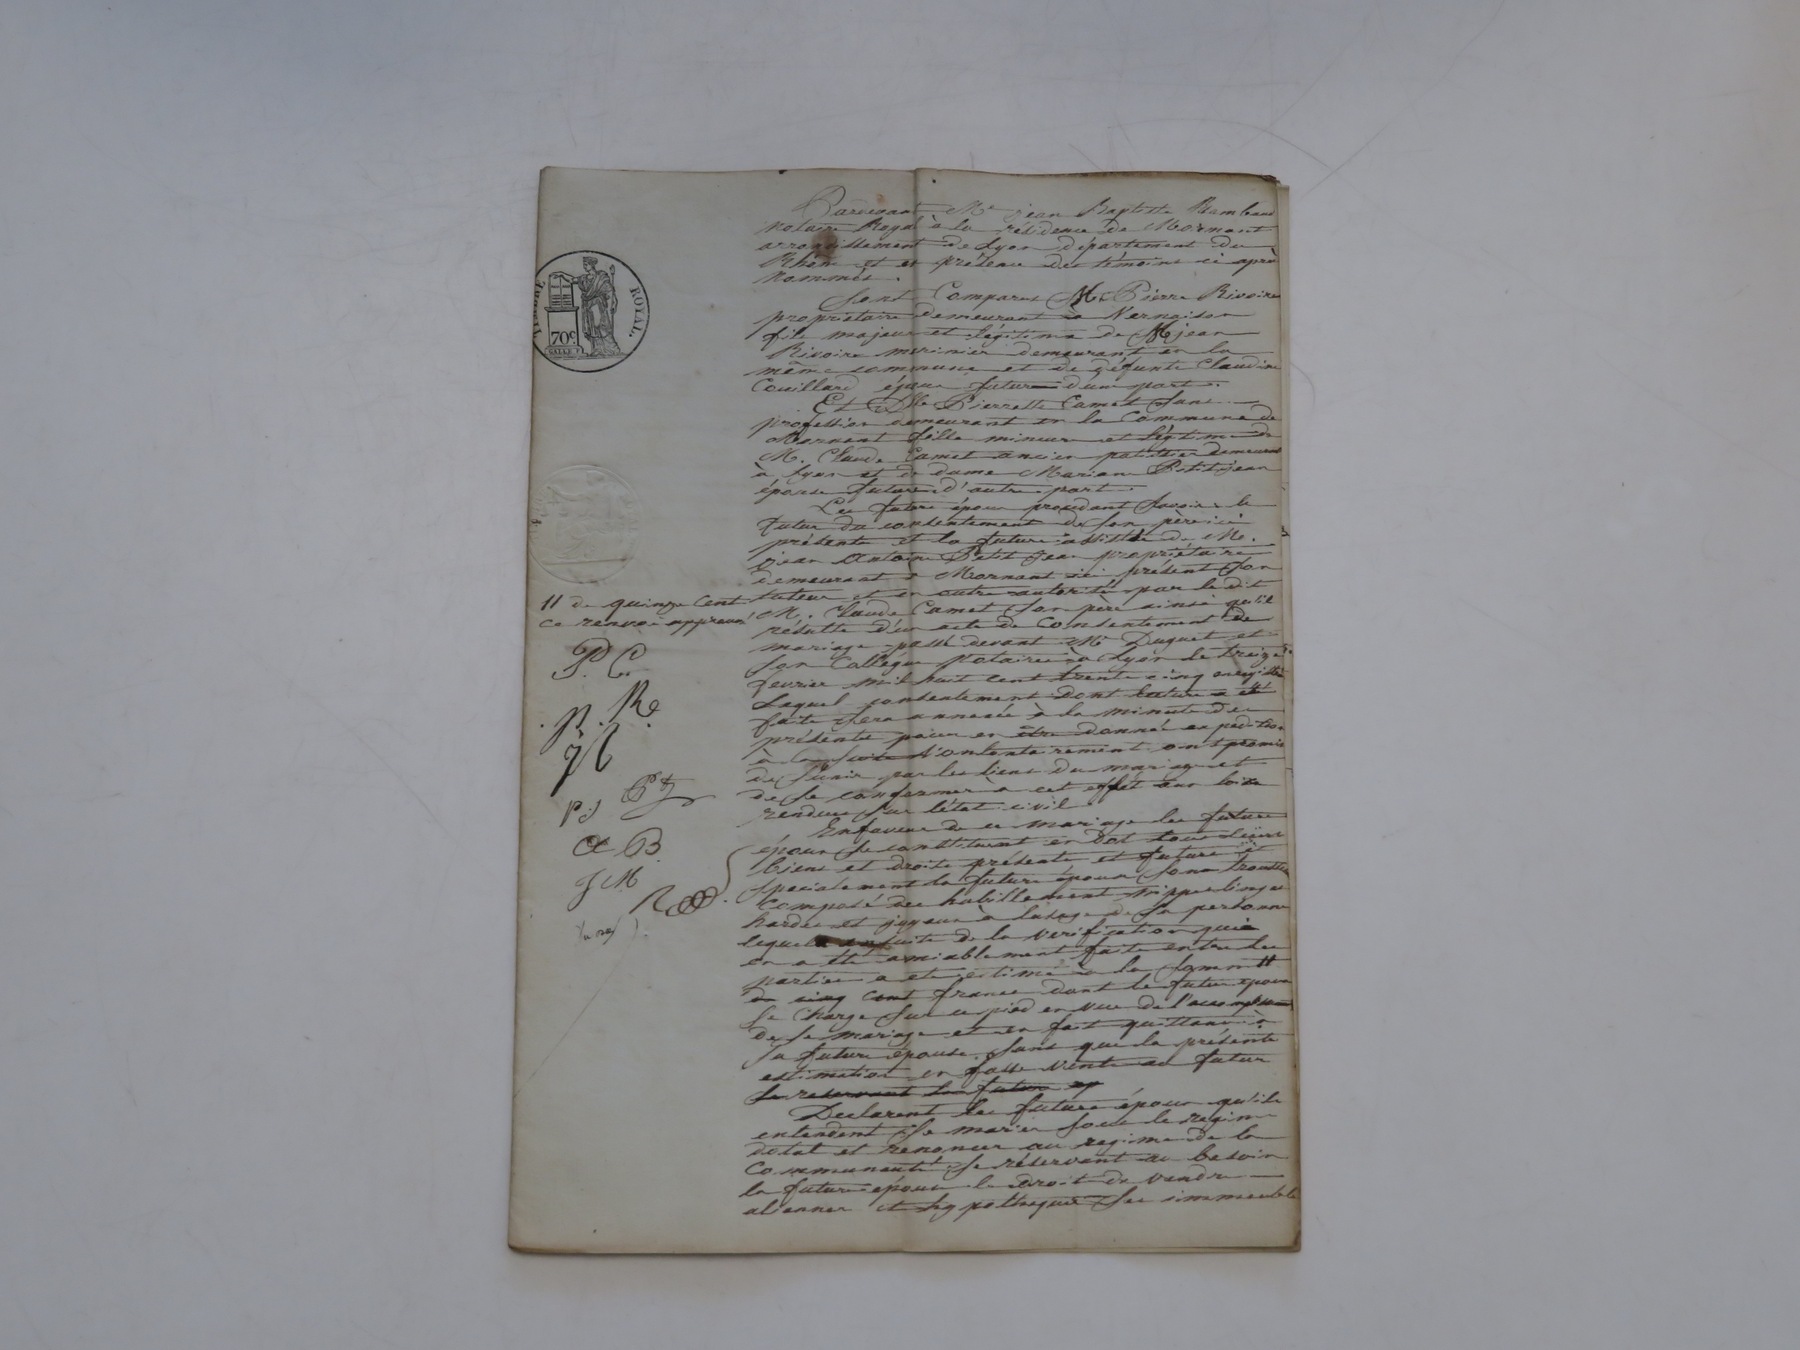 TIMBRE ROYAL.
70c.
Pardevant Me jean Baptiste Rambaud
notaire Royal à la résidence de Mornant
arrondissement de Lyon département du
Rhône et en présence des témoins ci après
nommés.
Sont Comparus M. Pierre Rivoire
propriétaire demeurant à Vernaison
fils majeur et légitime de M jean
Rivoire marinier demeurant en la
même commune et de défunte Claudine
Couillard époux futur d'une part.
Et Dlle Pierrette Camet sans
profession demeurant en la Commune de
Mornant fille mineure et légitime de
M. Claude Camet ancien pâtissier demeurant
à Lyon et de dame Marian Petitjean
épouse future d'autre part.
Les futurs époux procédant Savoir: le
futur du consentement de son père ici
présente et la future assistée de M.
jean Antoine Petit Jean propriétaire
demeurant à Mornant ici présent son
tuteur et en outre autorisée par le dit
M. Claude Camet son père ainsi qu'il
résulte d'un acte de Consentement de
mariage passé devant Me Duguet et
son Collégue Notaires à Lyon le treize
fevrier mil huit cent trente cinq enregistré
Lequel consentement dont lecture a été
faite sera annexée à la minute des
présente pour en être donné expedition
à la suite Volontairement ont promis
de S'unir par les liens du mariage et
de se conformer à cet effet aux loix
rendues sur l'état civil
En faveur de ce mariage les futurs
époux se constituent en dot tous leurs
biens et droits présents et futurs et
spécialement la future épouse son trousseau
Composé des habillement nippes linges
hardes et joyeaux à l'usage de sa personne
lequel en suite de la verification qui
en a été amiablement faite entre les
parties a été estimé à la somme //
de cinq cent francs dont le futur époux
se charge sur ce pied en vue de l'accomplissement
de ce mariage et en fait quittance à
sa future épouse. Sans que la présente
estimation en fasse vente au futur
se reservant la future ep
Declarent les futurs époux qu'ils
entendent se marier sous le régime
dotal et renoncer au regime de la
Communauté. Se réservant au besoin
la future épouse le droit de vendre
aliener et hypothequer Ses immeubles
// de quinze Cent
ce renvoi approuvé
P. C.
p. Re
P J
C B
J M
R